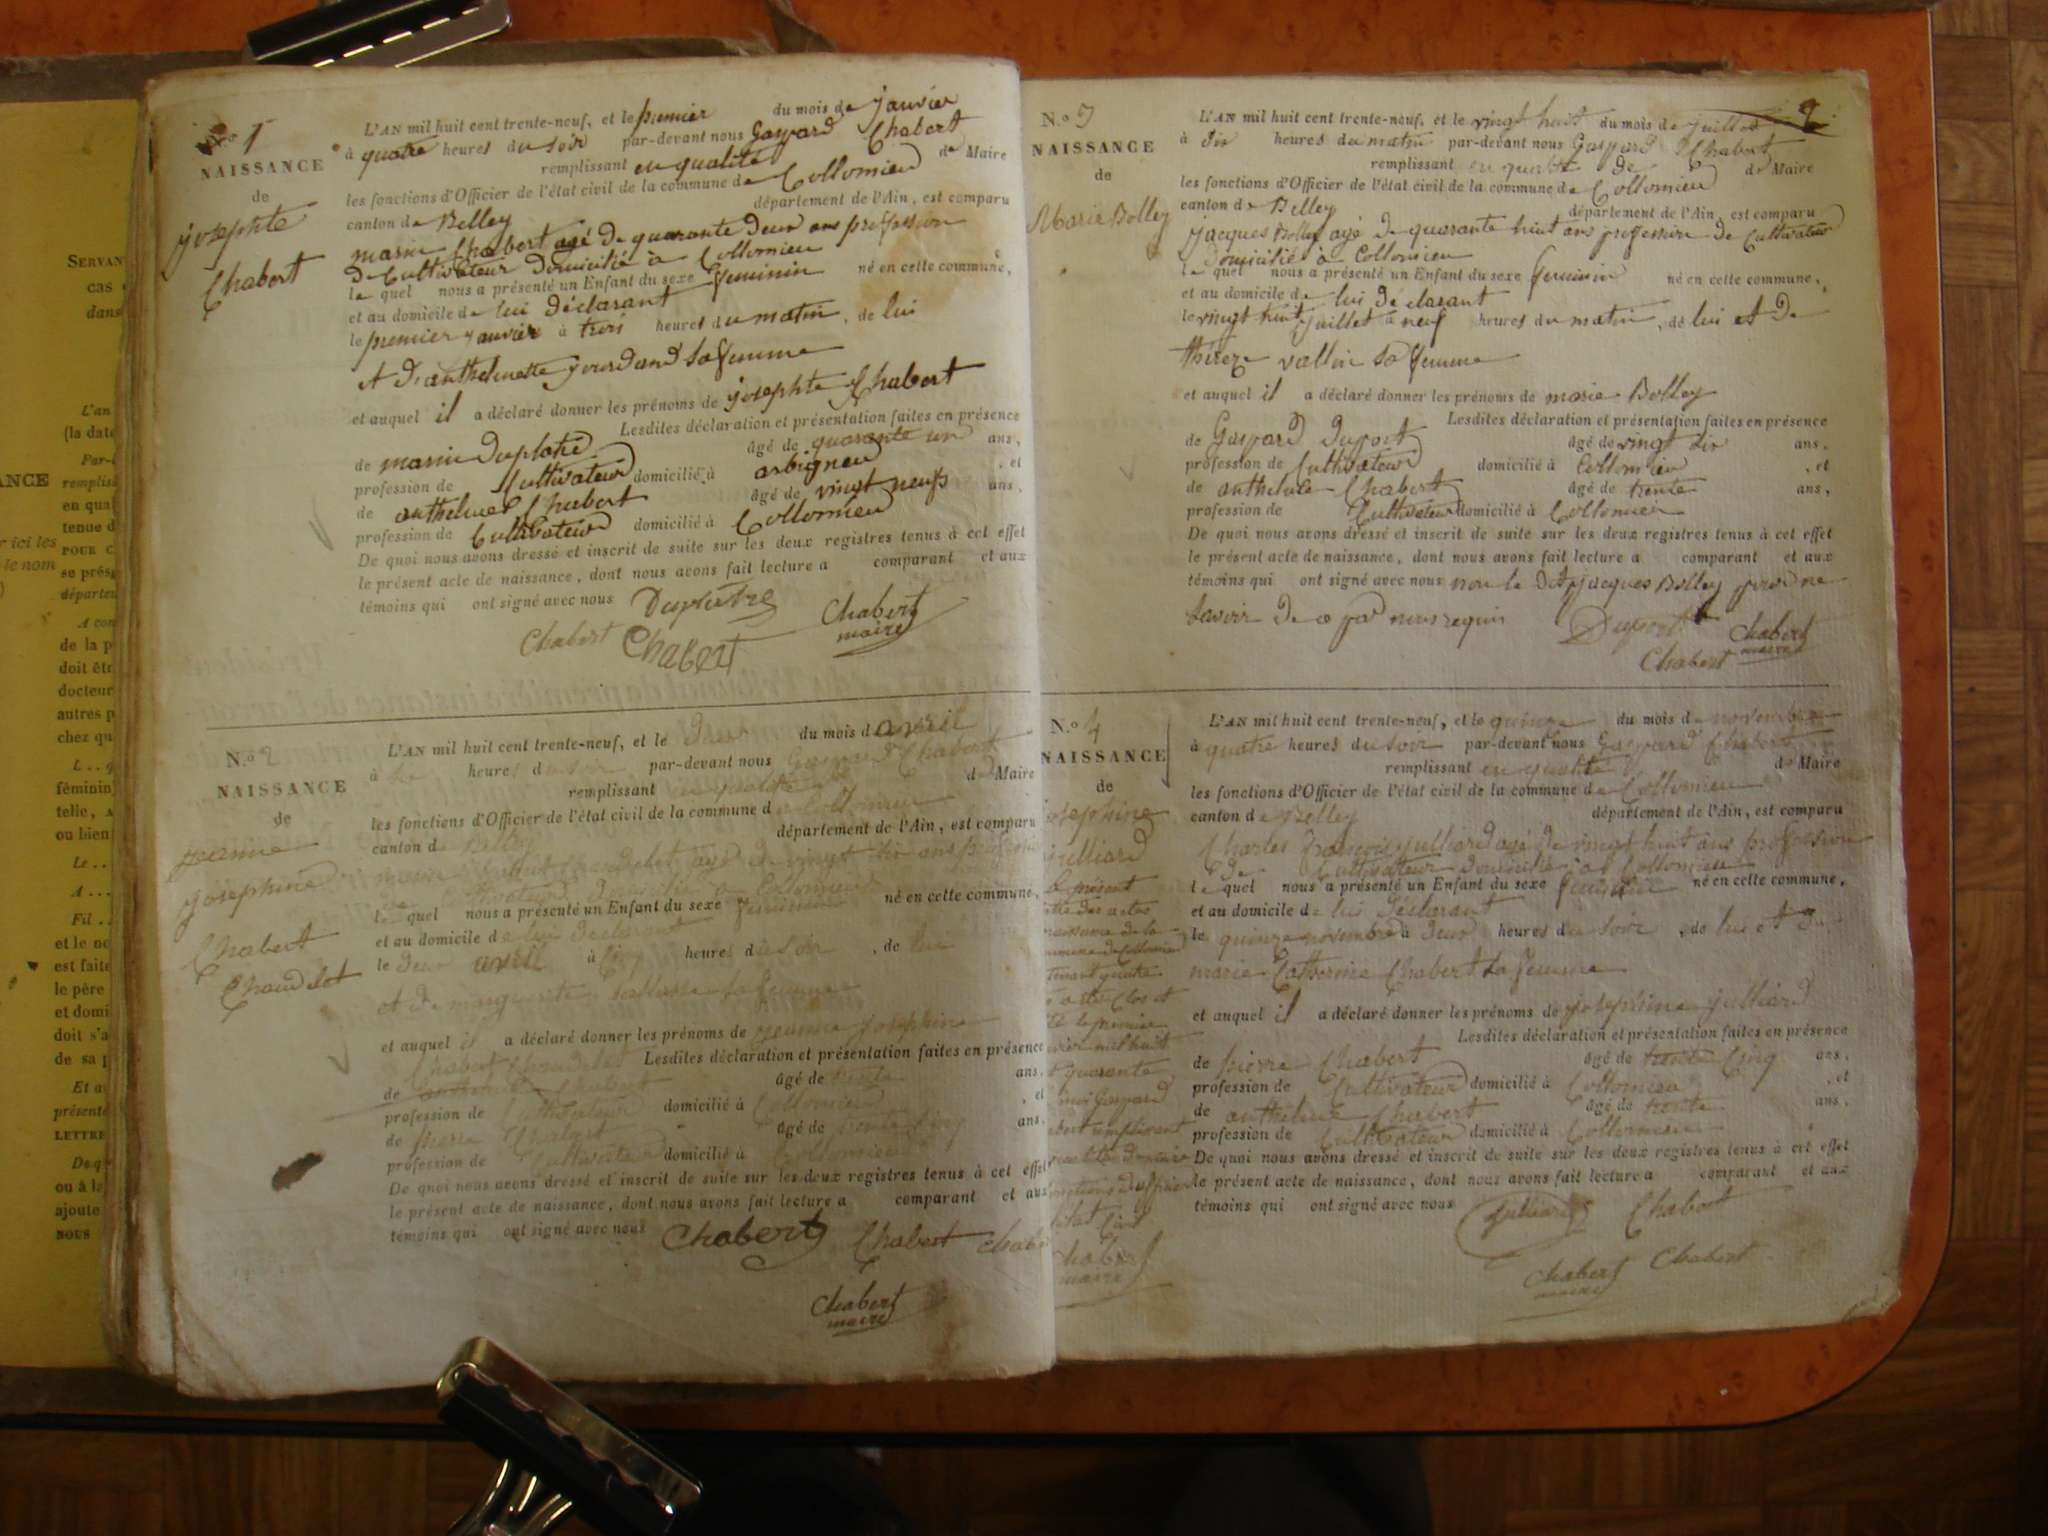 SERVAN
cas
dans
L'an
(la date
Par-
ANCE
remplis
en qual
tenue d
r ici les
POUR C
le nom
se prés
départem
A com
de la p
doit êtr
docteur
autres p
chez qu
L . . q
féminin
telle, A
ou bien
Le . .
A . . .
Fil . .
et le no
est faite
le père
et domi
doit s'a
de sa p
Et a
présenté
LETTRE
De qu
ou à la
ajoute
nous
N.o 1
NAISSANCE
de
josephte
Chabert
L'AN mil huit cent trente-neuf, et le premier du mois de janvier
à quatre heures du soir par-devant nous Gaspard Chabert
remplissant en qualité de Maire
les fonctions d'Officier de l'état civil de la commune de Collomieu
canton de Belley département de l'Ain, est comparu
marin Chabert agé de quarante deux ans profession
de Cultivateur domicilié à Collomieu
le quel nous a présenté un Enfant du sexe feminin né en cette commune,
et au domicile de lui déclarant
le premier janvier à trois heures du matin, de lui
et d'anthelmette jourdand sa femme
et auquel il a déclaré donner les prénoms de josephte Chabert
Lesdites déclaration et présentation faites en présence
de marin Duplatre âgé de quarante un ans,
profession de Cultivateur domicilié à arbignieu, et
de anthelme Chabert âgé de vingt neufs ans,
profession de Cultivateur domicilié à Collomieu
De quoi nous avons dressé et inscrit de suite sur les deux registres tenus à cet effet
le présent acte de naissance, dont nous avons fait lecture a comparant et aux
témoins qui ont signé avec nous Duplatre
Chabert Chabert Chabert
maire
N.o 2
NAISSANCE
de
jeanne
josephine
Chabert
Chaudelet
L'AN mil huit cent trente-neuf, et le deux du mois d avril
à heures du soir par-devant nous Gaspard Chabert
remplissant en qualité de Maire
les fonctions d'Officier de l'état civil de la commune de Collomieu
canton de Belley département de l'Ain, est comparu
Chabert Chaudelet agé de vingt ans profession
de Cultivateur domicilié à Collomieu
le quel nous a présenté un Enfant du sexe feminin né en cette commune,
et au domicile de lui déclarant
le deux avril à cinq heures du soir, de lui
et de marguerite sa femme
et auquel il a déclaré donner les prénoms de jeanne josephine
Chabert Chaudelet Lesdites déclaration et présentation faites en présence
de anthelme Chabert âgé de trente ans,
profession de Cultivateur domicilié à Collomieu, et
de pierre Chabert âgé de trente cinq ans,
profession de Cultivateur domicilié à Collomieu
De quoi nous avons dressé et inscrit de suite sur les deux registres tenus à cet effet
le présent acte de naissance, dont nous avons fait lecture a comparant et aux
témoins qui ont signé avec nous Chabert Chabert Chab
Chabert
maire
N.o 3
NAISSANCE
de
Marie Bolley
L'AN mil huit cent trente-neuf, et le vingt huit du mois de juillet
à dix heures du matin par-devant nous Gaspard Chabert
remplissant en qualité de de Maire
les fonctions d'Officier de l'état civil de la commune de Collomieu
canton de Belley département de l'Ain, est comparu
jacques Bolley agé de quarante huit ans profession de Cultivateur
domicilié à Collomieu
le quel nous a présenté un Enfant du sexe feminin né en cette commune,
et au domicile de lui déclarant
le vingt huit juillet à neuf heures du matin, de lui et de
thereze vallin sa femme
et auquel il a déclaré donner les prénoms de marie Bolley
Lesdites déclaration et présentation faites en présence
de Gaspard Duport âgé de vingt dix ans,
profession de Cultivateur domicilié à Collomieu, et
de anthelme Chabert âgé de trente ans,
profession de Cultivateur domicilié à Collomieu
De quoi nous avons dressé et inscrit de suite sur les deux registres tenus à cet effet
le présent acte de naissance, dont nous avons fait lecture a comparant et aux
témoins qui ont signé avec nous non le dit jacques Bolley pour ne
savoir de ce par nous requis Duport Chabert
maire
Chabert
N.o 4
NAISSANCE
de
josephine
julliard
le présent
des actes
naissance de la
commune de Collomieu
quatre
actes Clos et
le premier
janvier mil huit
quarante
moi Gaspard
Chabert remplissant
fonctions d'officier
l'état Civil
Chabert
maire
L'AN mil huit cent trente-neuf, et le quinze du mois de novembre
à quatre heures du soir par-devant nous Gaspard Chabert
remplissant en qualité de Maire
les fonctions d'Officier de l'état civil de la commune de Collomieu
canton de Belley département de l'Ain, est comparu
Charles françois julliard agé de vingt huit ans profession
de Cultivateur domicilié à Collomieu
le quel nous a présenté un Enfant du sexe feminin né en cette commune,
et au domicile de lui déclarant
le quinze novembre à deux heures du soir, de lui et de
marie Catherine Chabert sa femme
et auquel il a déclaré donner les prénoms de josephine julliard
Lesdites déclaration et présentation faites en présence
de pierre Chabert âgé de trente cinq ans,
profession de Cultivateur domicilié à Collomieu, et
de anthelme Chabert âgé de trente ans,
profession de Cultivateur domicilié à Collomieu
De quoi nous avons dressé et inscrit de suite sur les deux registres tenus à cet effet
le présent acte de naissance, dont nous avons fait lecture a comparant et aux
témoins qui ont signé avec nous julliard Chabert
Chabert Chabert
maire